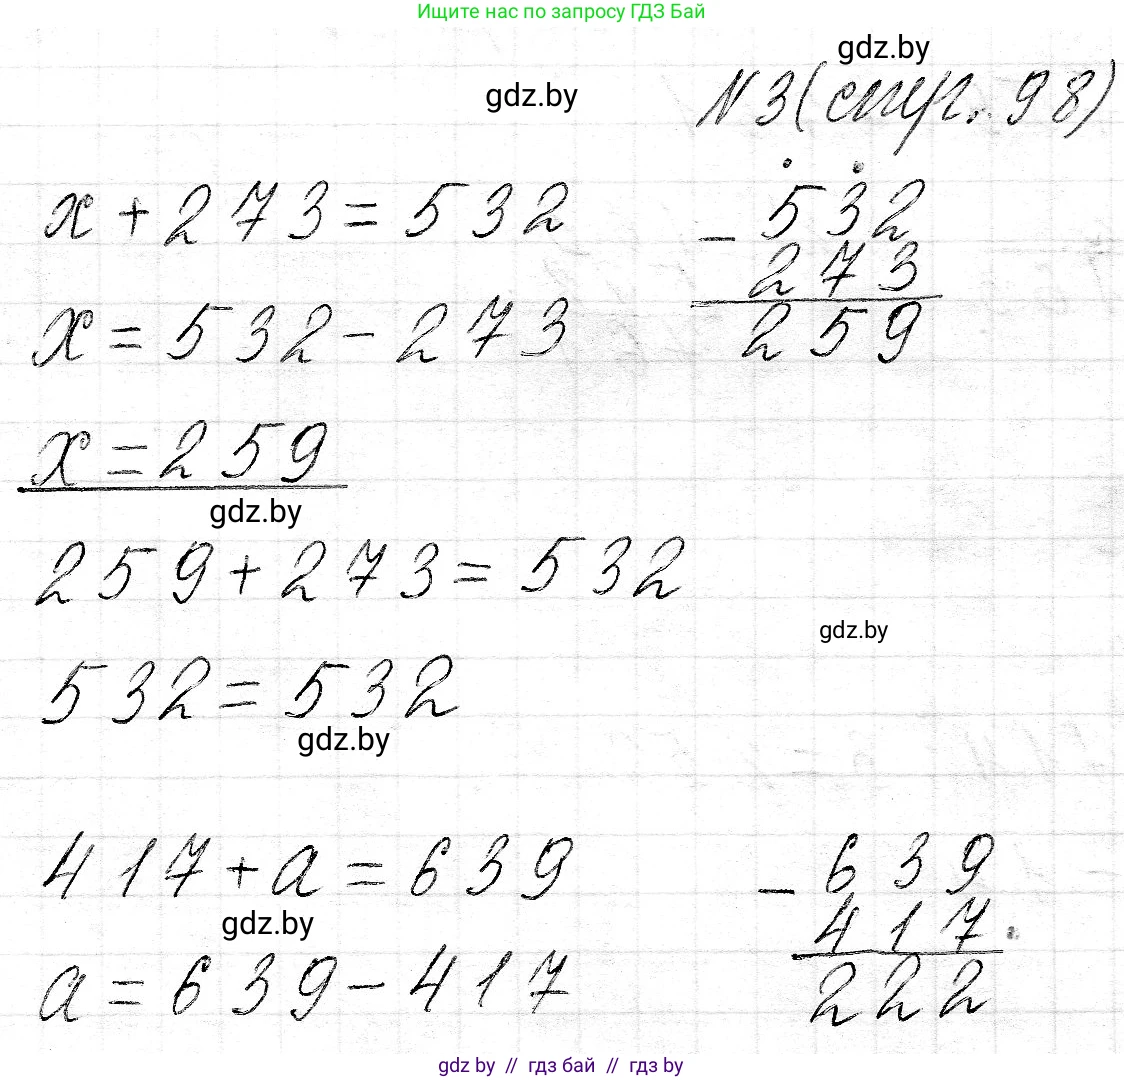 Ищите нас по запросу ГДЗ Бай
gdz.by
gdz.by
N 3 (стр. 98)
x + 273 = 532
x = 532 - 273
x = 259
- 532
273
259
gdz.by
259 + 273 = 532
gdz.by
532 = 532
gdz.by
417 + a = 639
gdz.by
a = 639 - 417
- 639
417
222
gdz by // гдз бай // гдз by